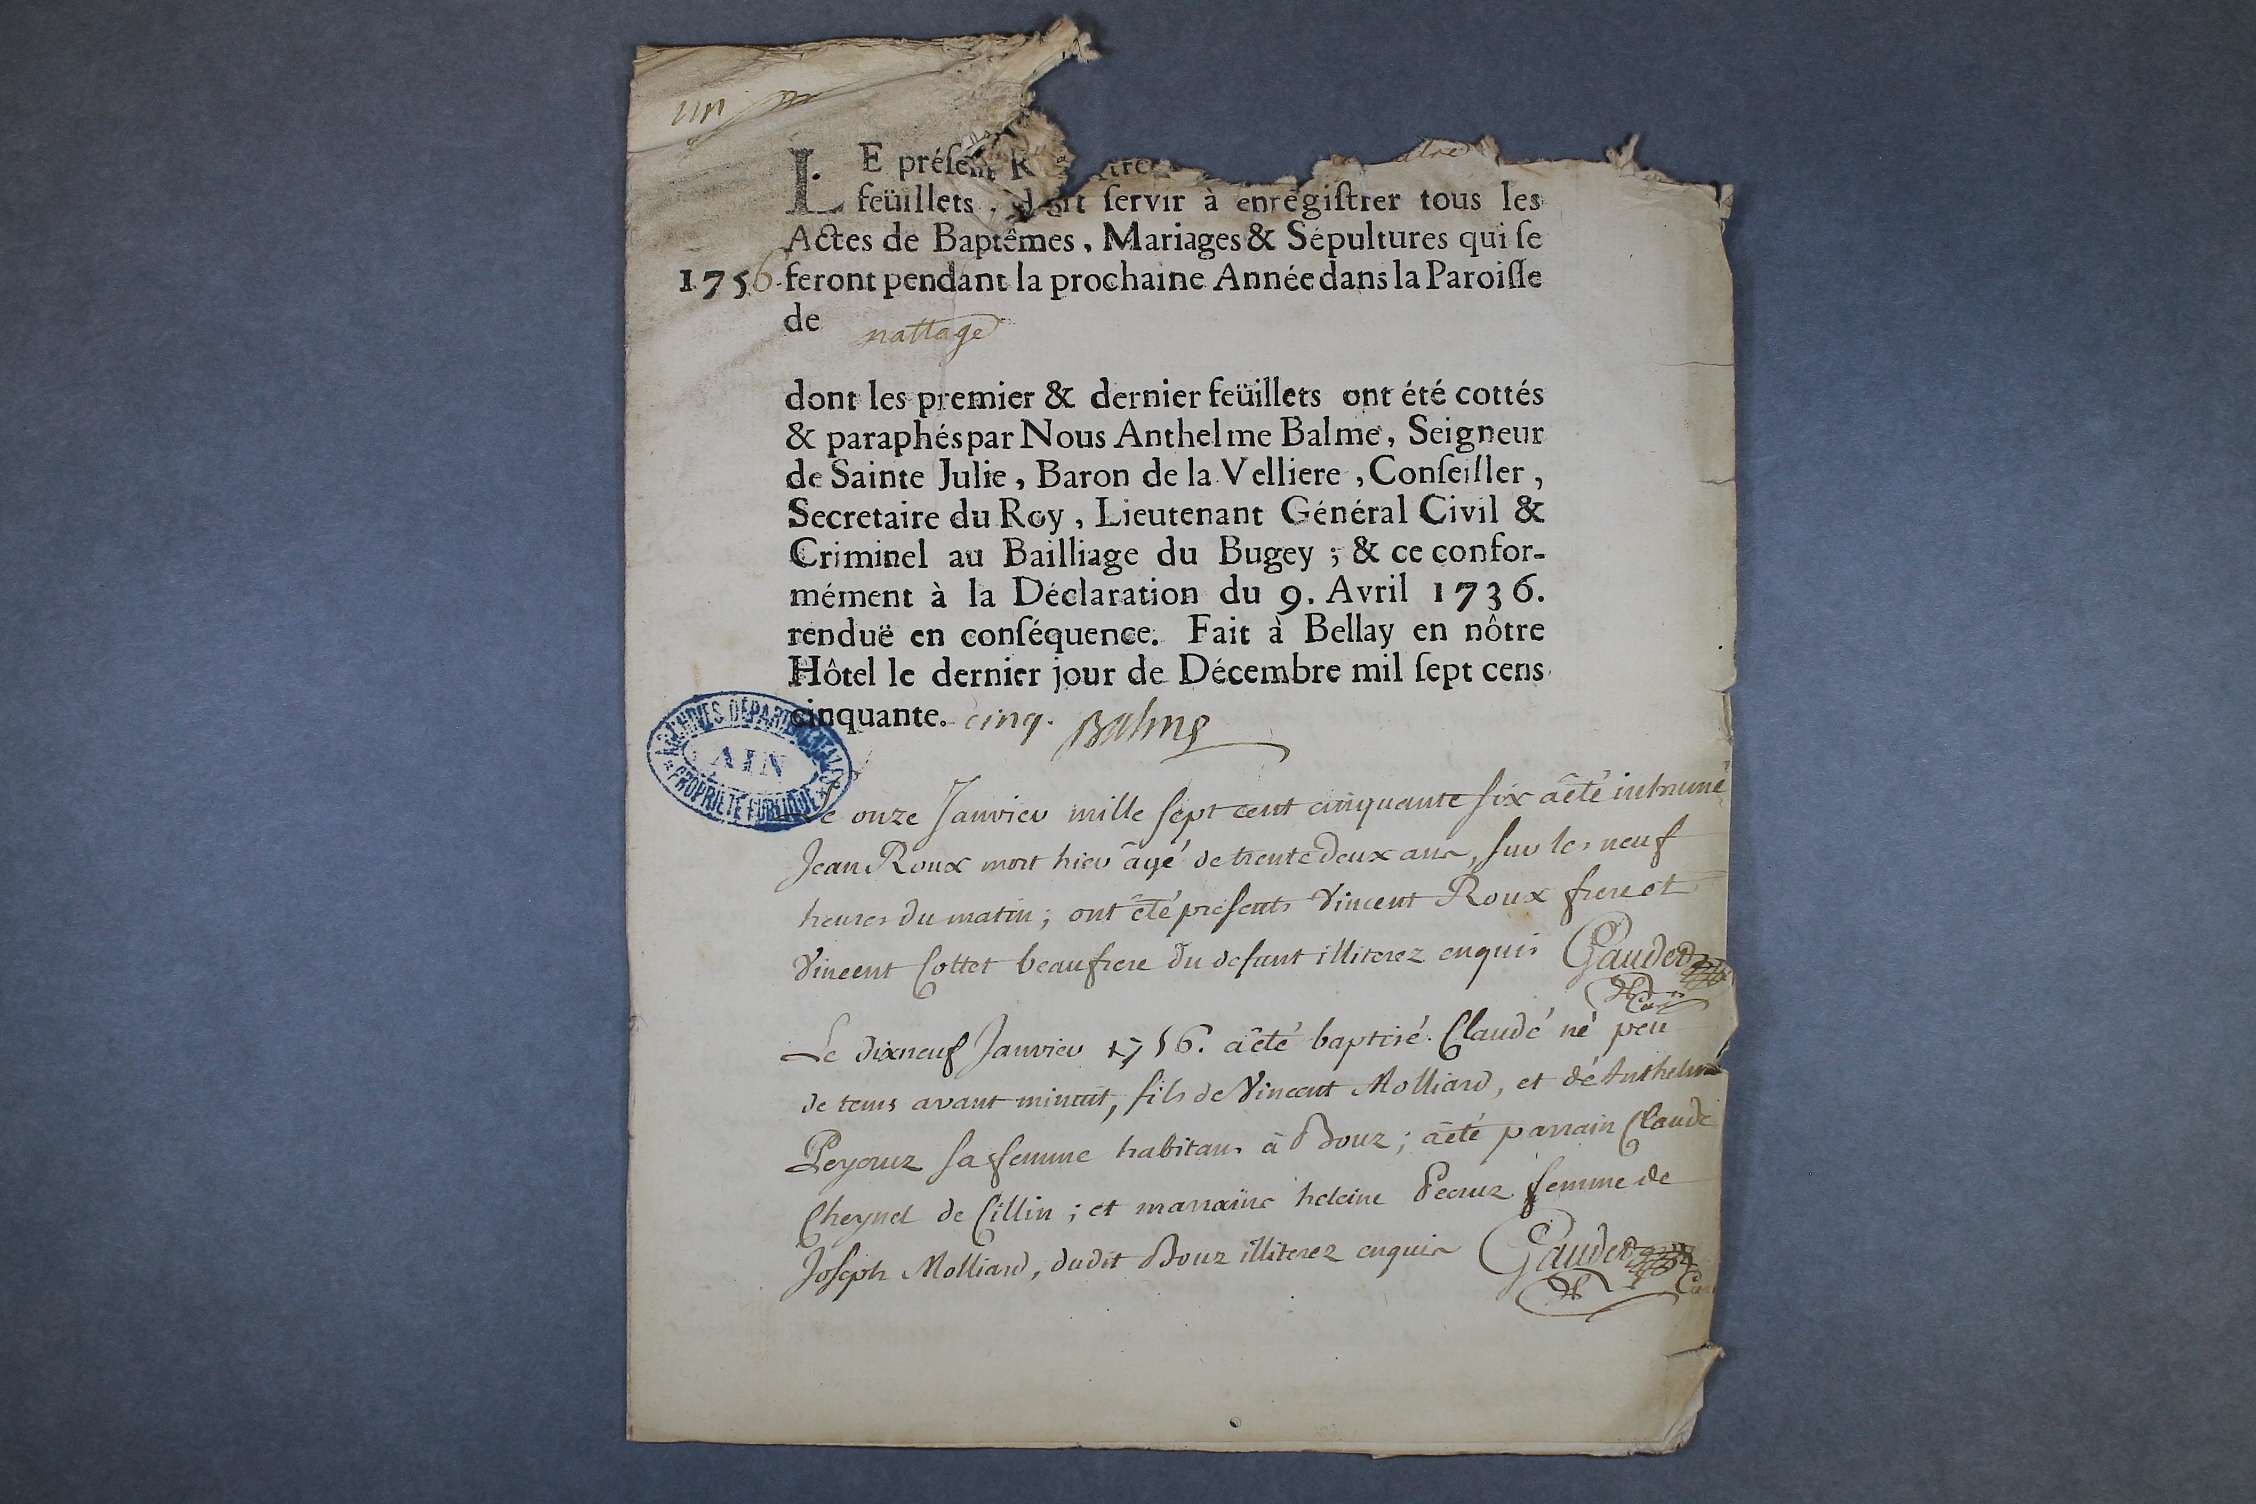 un
LE préſent
feüillets, doit ſervir à enregiſtrer tous les
Actes de Baptêmes, Mariages & Sépultures qui ſe
1756. feront pendant la prochaine Année dans la Paroiſſe
de nattage
dont les premier & dernier feüillets ont été cottés
& paraphés par Nous Anthelme Balme, Seigneur
de Sainte Julie, Baron de la Velliere, Conſeiller,
Secretaire du Roy, Lieutenant Général Civil &
Criminel au Bailliage du Bugey; & ce confor-
mément à la Déclaration du 9. Avril 1736.
renduë en conſéquence. Fait à Bellay en nôtre
Hôtel le dernier jour de Décembre mil ſept cens
cinquante. cinq. Balme
ARCHIVES DÉPARTEMENTALES
AIN
PROPRIÉTÉ PUBLIQUE
Le onze Janvier mille sept cent cinquante six a êté inhumé
Jean Roux mort hier âgé de trente deux ans, sur les neuf
heures du matin; ont êté présents Vincent Roux frere et
Vincent Cottet beaufrere du defunt illiterez enquis Gaudet
Le dixneuf Janvier 1756. a êté baptisé Claude né peu
de tems avant minuit, fils de Vincent Molliard, et de Anthelme
Peyouz sa femme habitans à Bouz; a êté parrain Claude
Cheynel de Cillin; et marraine heleine Pecruz femme de
Joseph Molliard, dudit Bouz illiterez enquis Gaudet